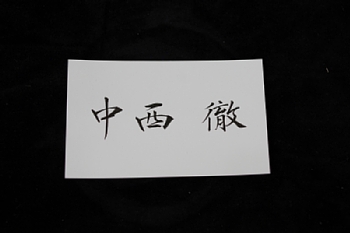 中西 徹